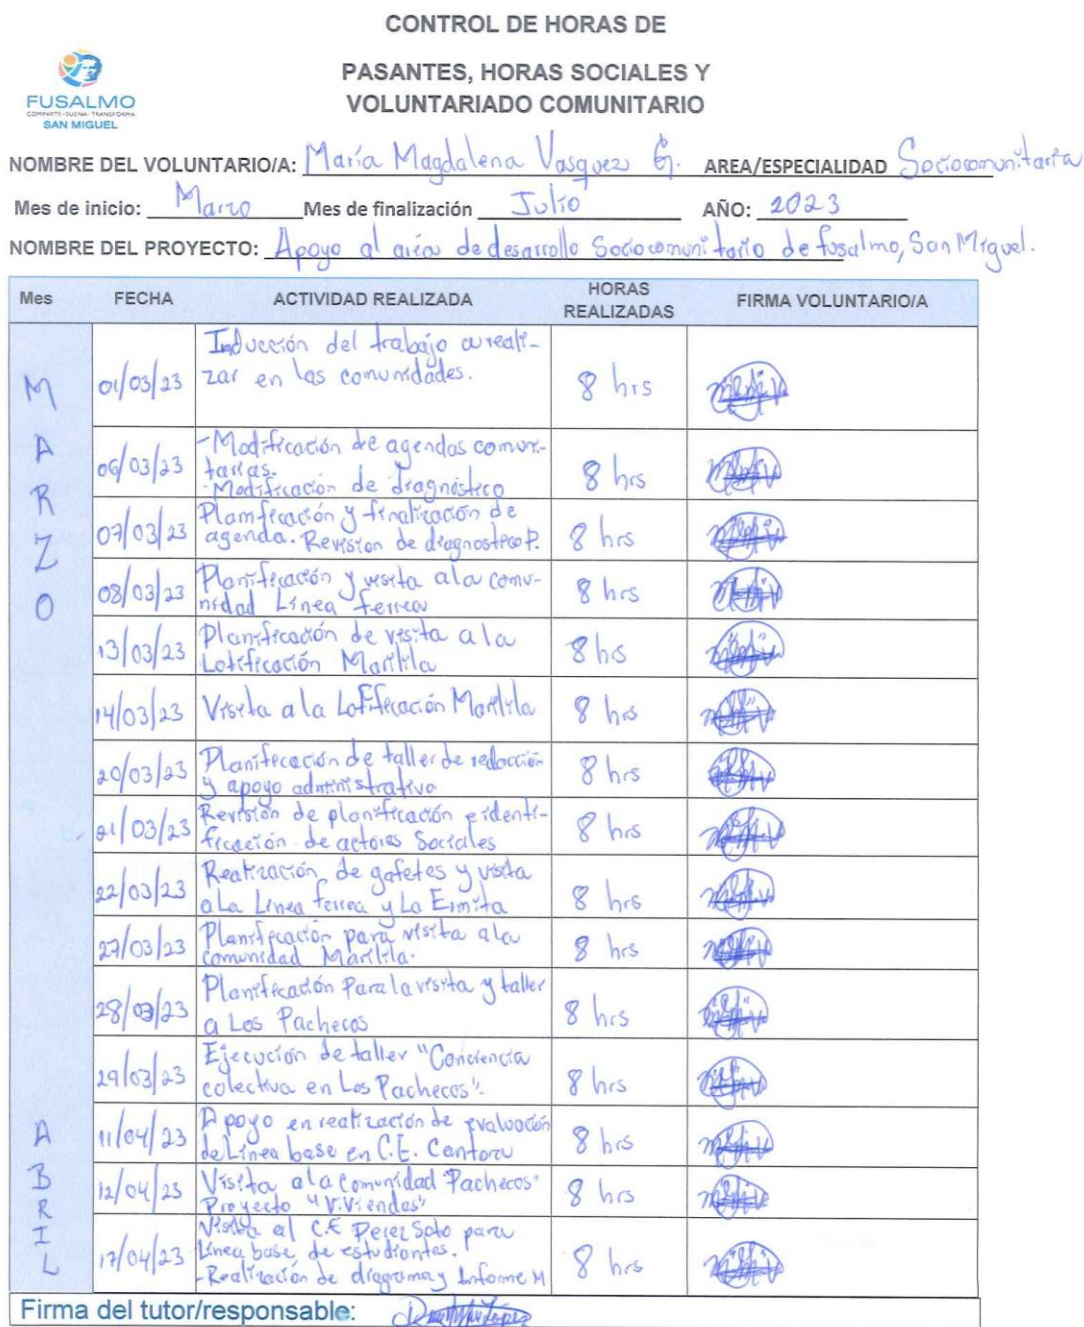 CONTROL DE HORAS DE
PASANTES, HORAS SOCIALES Y
VOLUNTARIADO COMUNITARIO
FUSALMO
COMPARTE-SUEÑA-TRANSFORMA
SAN MIGUEL
NOMBRE DEL VOLUNTARIO/A: María Magdalena Vasquez G. AREA/ESPECIALIDAD Sociocomunitaria
Mes de inicio: Marzo Mes de finalización Julio AÑO: 2023
NOMBRE DEL PROYECTO: Apoyo al área de desarrollo Sociocomunitario de fusalmo, San Miguel.
Mes FECHA ACTIVIDAD REALIZADA HORAS REALIZADAS FIRMA VOLUNTARIO/A
MARZO
01/03/23 Inducción del trabajo a reali-
zar en las comunidades. 8 hrs
06/03/23 -Modificación de agendas comuni-
tarias.
-Modificación de diagnóstico 8 hrs
07/03/23 Planificación y finalización de
agenda. Revisión de diagnostico P. 8 hrs
08/03/23 Planificación y visita a la comu-
nidad Línea ferrea 8 hrs
13/03/23 Planificación de visita a la
Lotificación Marilila 8 hrs
14/03/23 Visita a la Lotificación Marilila 8 hrs
20/03/23 Planificación de taller de redacción
y apoyo administrativo 8 hrs
21/03/23 Revisión de planificación e identi-
ficación de actores Sociales 8 hrs
22/03/23 Realización de gafetes y visita
a La Linea ferrea y La Ermita 8 hrs
27/03/23 Planificación para visita a la
comunidad Marilila. 8 hrs
28/03/23 Planificación Para la visita y taller
a Los Pachecos 8 hrs
29/03/23 Ejecución de taller "Conciencia
colectiva en Los Pachecos". 8 hrs
ABRIL
11/04/23 Apoyo en realización de evaluación
de Línea base en C.E. Cantora 8 hrs
12/04/23 Visita a la comunidad Pachecos"
Proyecto "Viviendas" 8 hrs
17/04/23 Visita al C.E Perez Soto para
Línea base de estudiantes.
-Realización de diagrama y Informe M 8 hrs
Firma del tutor/responsable: